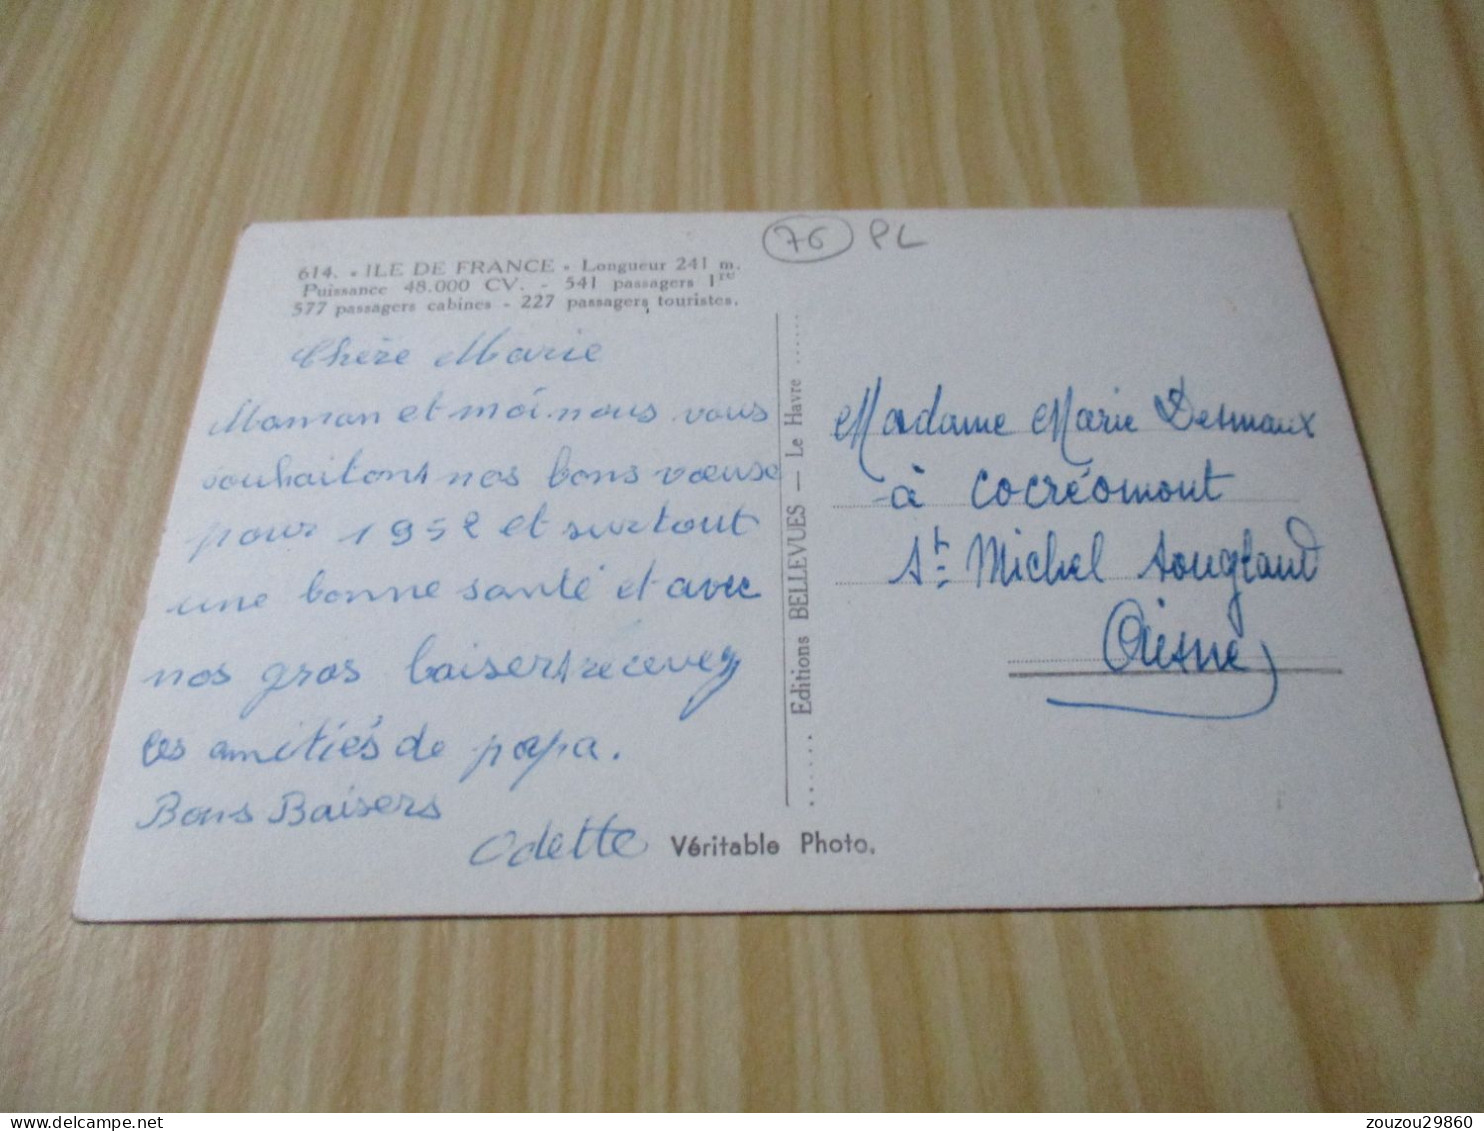 76 PL
614. « ILE DE FRANCE » Longueur 241 m.
Puissance 48.000 CV. - 541 passagers 1re
577 passagers cabines - 227 passagers touristes.
Chère Marie
Maman et moi nous vous
souhaitons nos bons vœuse
pour 1952 et surtout
une bonne santé et avec
nos gros baisers recevez
les amitiés de papa.
Bons Baisers
Odette
Véritable Photo.
Editions BELLEVUES — Le Havre
Madame Marie Desmaux
à Cocréomont
St Michel Sougland
Aisne
zouzou29860